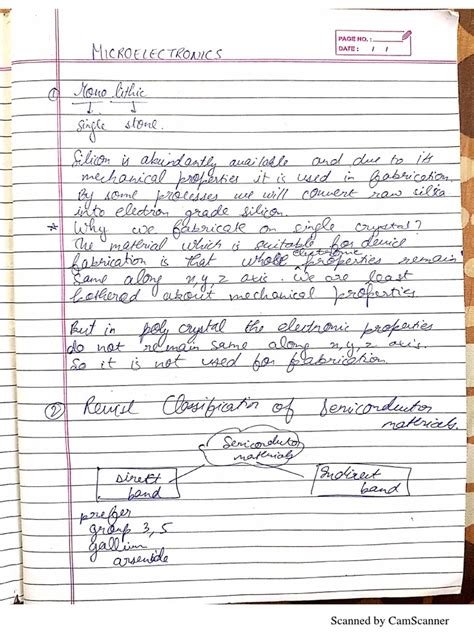 PAGE NO. :
DATE : / /
MICROELECTRONICS
① Mono lithic
↓ ↓
Single stone.
Silicon is abundantly available and due to its
mechanical properties it is used in fabrication.
By some processes we will convert raw silica
into electron grade silicon.
* Why we fabricate on single crystal?
The material which is suitable for device
electronic
fabrication is that whole properties remain
same along x, y, z axis. We are least
bothered about mechanical properties
But in poly crystal the electronic properties
do not remain same along x, y, z axis.
So it is not used for fabrication.
② Classification of Semiconductor
materials.
Semiconductor
materials
direct
band
Indirect
band
prefer
group 3, 5
gallium
arsenide
Scanned by CamScanner